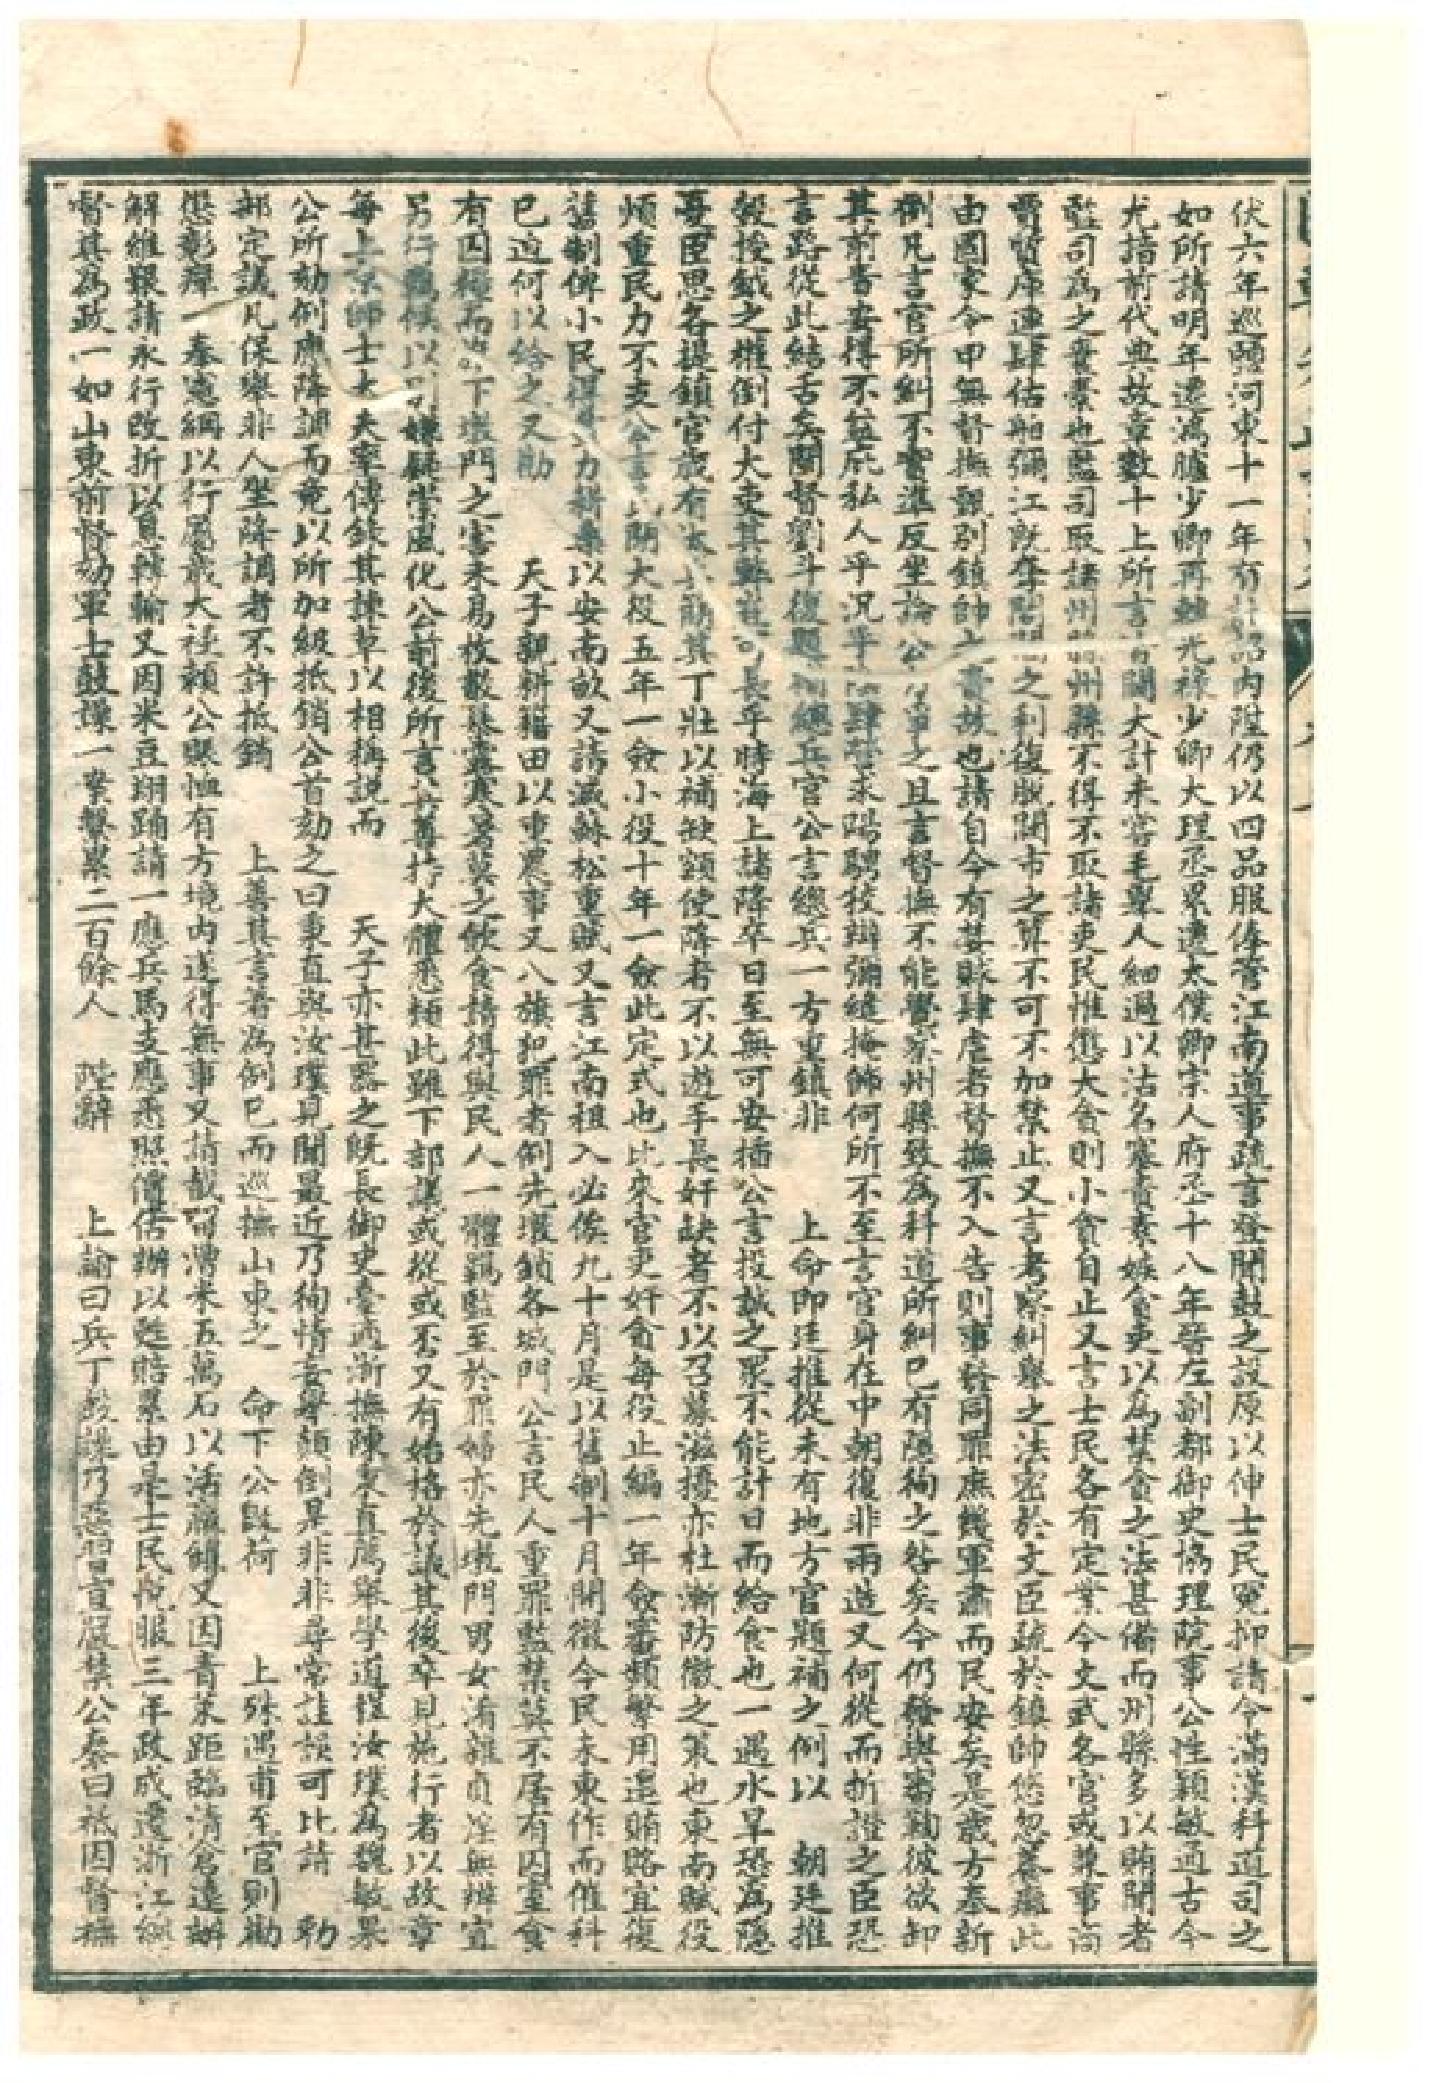 伏六年巡鹽河東十一年有詔內陞仍以四品服俸管江南道事疏言登聞鼓之設原以伸士民冤抑請令滿漢科道司之
如所請明年遷鴻臚少卿再轉光祿少卿大理丞累遷太僕卿宗人府丞十八年晉左副都御史協理院事公性穎敏通古今
尤諳前代典故章數十上所言皆關大計未嘗毛舉人細過以沽名塞責素嫉貪吏以為禁貪之法甚備而州縣多以賄聞者
監司為之囊橐也監司取諸州縣州縣不得不取諸吏民惟懲大貪則小貪自止又言士民各有定業今文武各官或兼事商
賈質庫連肆估舶彌江既奪閭閻之利復脫關市之算不可不加禁止又言考察糾舉之法密於文臣疏於鎮帥怠忽養癰此
由國家令甲無督撫甄別鎮帥之書故也請自今有婪賕肆虐者督撫不入告則事發同罪庶幾軍肅而民安矣是歲方奉新
例凡言官所糾不實進反坐論公之且言督撫不能覺察州縣致為科道所糾已有隱徇之咎矣今仍發與審鞫彼欲卸
其前咎安得不益庇私人乎況求賜騁狡辯彌縫掩飾何所不至言官身在中朝復非兩造又何從而折證之臣恐
言路從此結舌矣閩督劉斗復題總兵官公言總兵一方重鎮非　上命即廷推從未有地方官題補之例以　朝廷推
轂授鉞之權倒付大吏其弊可長乎時海上諸降卒日至無可安插公言投誠之眾不能計日而給食也一遇水旱恐為隱
憂臣思各提鎮官歲有汰其丁壯以補缺額使降者不以遊手長奸缺者不以召募滋擾亦杜漸防微之策也東南賦役
煩重民力不支公言民間大役五年一僉小役十年一僉此定式也比來官吏奸貪每役止編一年僉審頻繁用遑賄賂宜復
舊制俾小民得以力耕桑以安南畝又請減蘇松重賦又言江南租入必俟九十月是以舊制十月開徵今民未東作而催科
已迫何以給之又勸　天子親耕籍田以重農事又八旗犯罪者例先墩鎖各城門公言民人重罪監禁莫不居有囚室食
有囚糧而下墩門之害未易枚數暴露寒暑莫之飲食請得與民人一體羈監至於罪婦亦先墩門男女淆雜貞淫無辨宜
另行羈候以別嫌疑崇風化公前後所言其尊持大體悉類此雖下部議或從或否又有始格於議其後卒見施行者以故章
每上京師士大夫率傳錄其諫草以相稱說而　天子亦甚器之既長御史臺適浙撫陳秉直薦舉學道程汝璞為魏敏果
公所劾例應降調而竟以所加級抵銷公首劾之曰秉直與汝璞見聞最近乃徇情妄舉顛倒是非非尋常詿誤可比請　勅
部定議凡保舉非人坐降調者不許抵銷　上善其言著為例已而巡撫山東之　命下公既荷　上殊遇甫至官則勸
懲彰癉一秦憲綱以行屬歲大祲賴公賑恤有方境內遂得無事又請截留漕米五萬石以活羸餓又因青萊距臨清倉遠辦
解維艱請永行改折以息轉輸又因米豆翔踊請一應兵馬支應悉照價估辦以甦賠累由是士民悅服三年政成遷浙江總
督其為政一如山東前督劾軍士鼓譟一案繫累二百餘人　陛辭　上諭曰兵丁鼓譟乃惡習宜嚴禁公奏曰祇因督撫